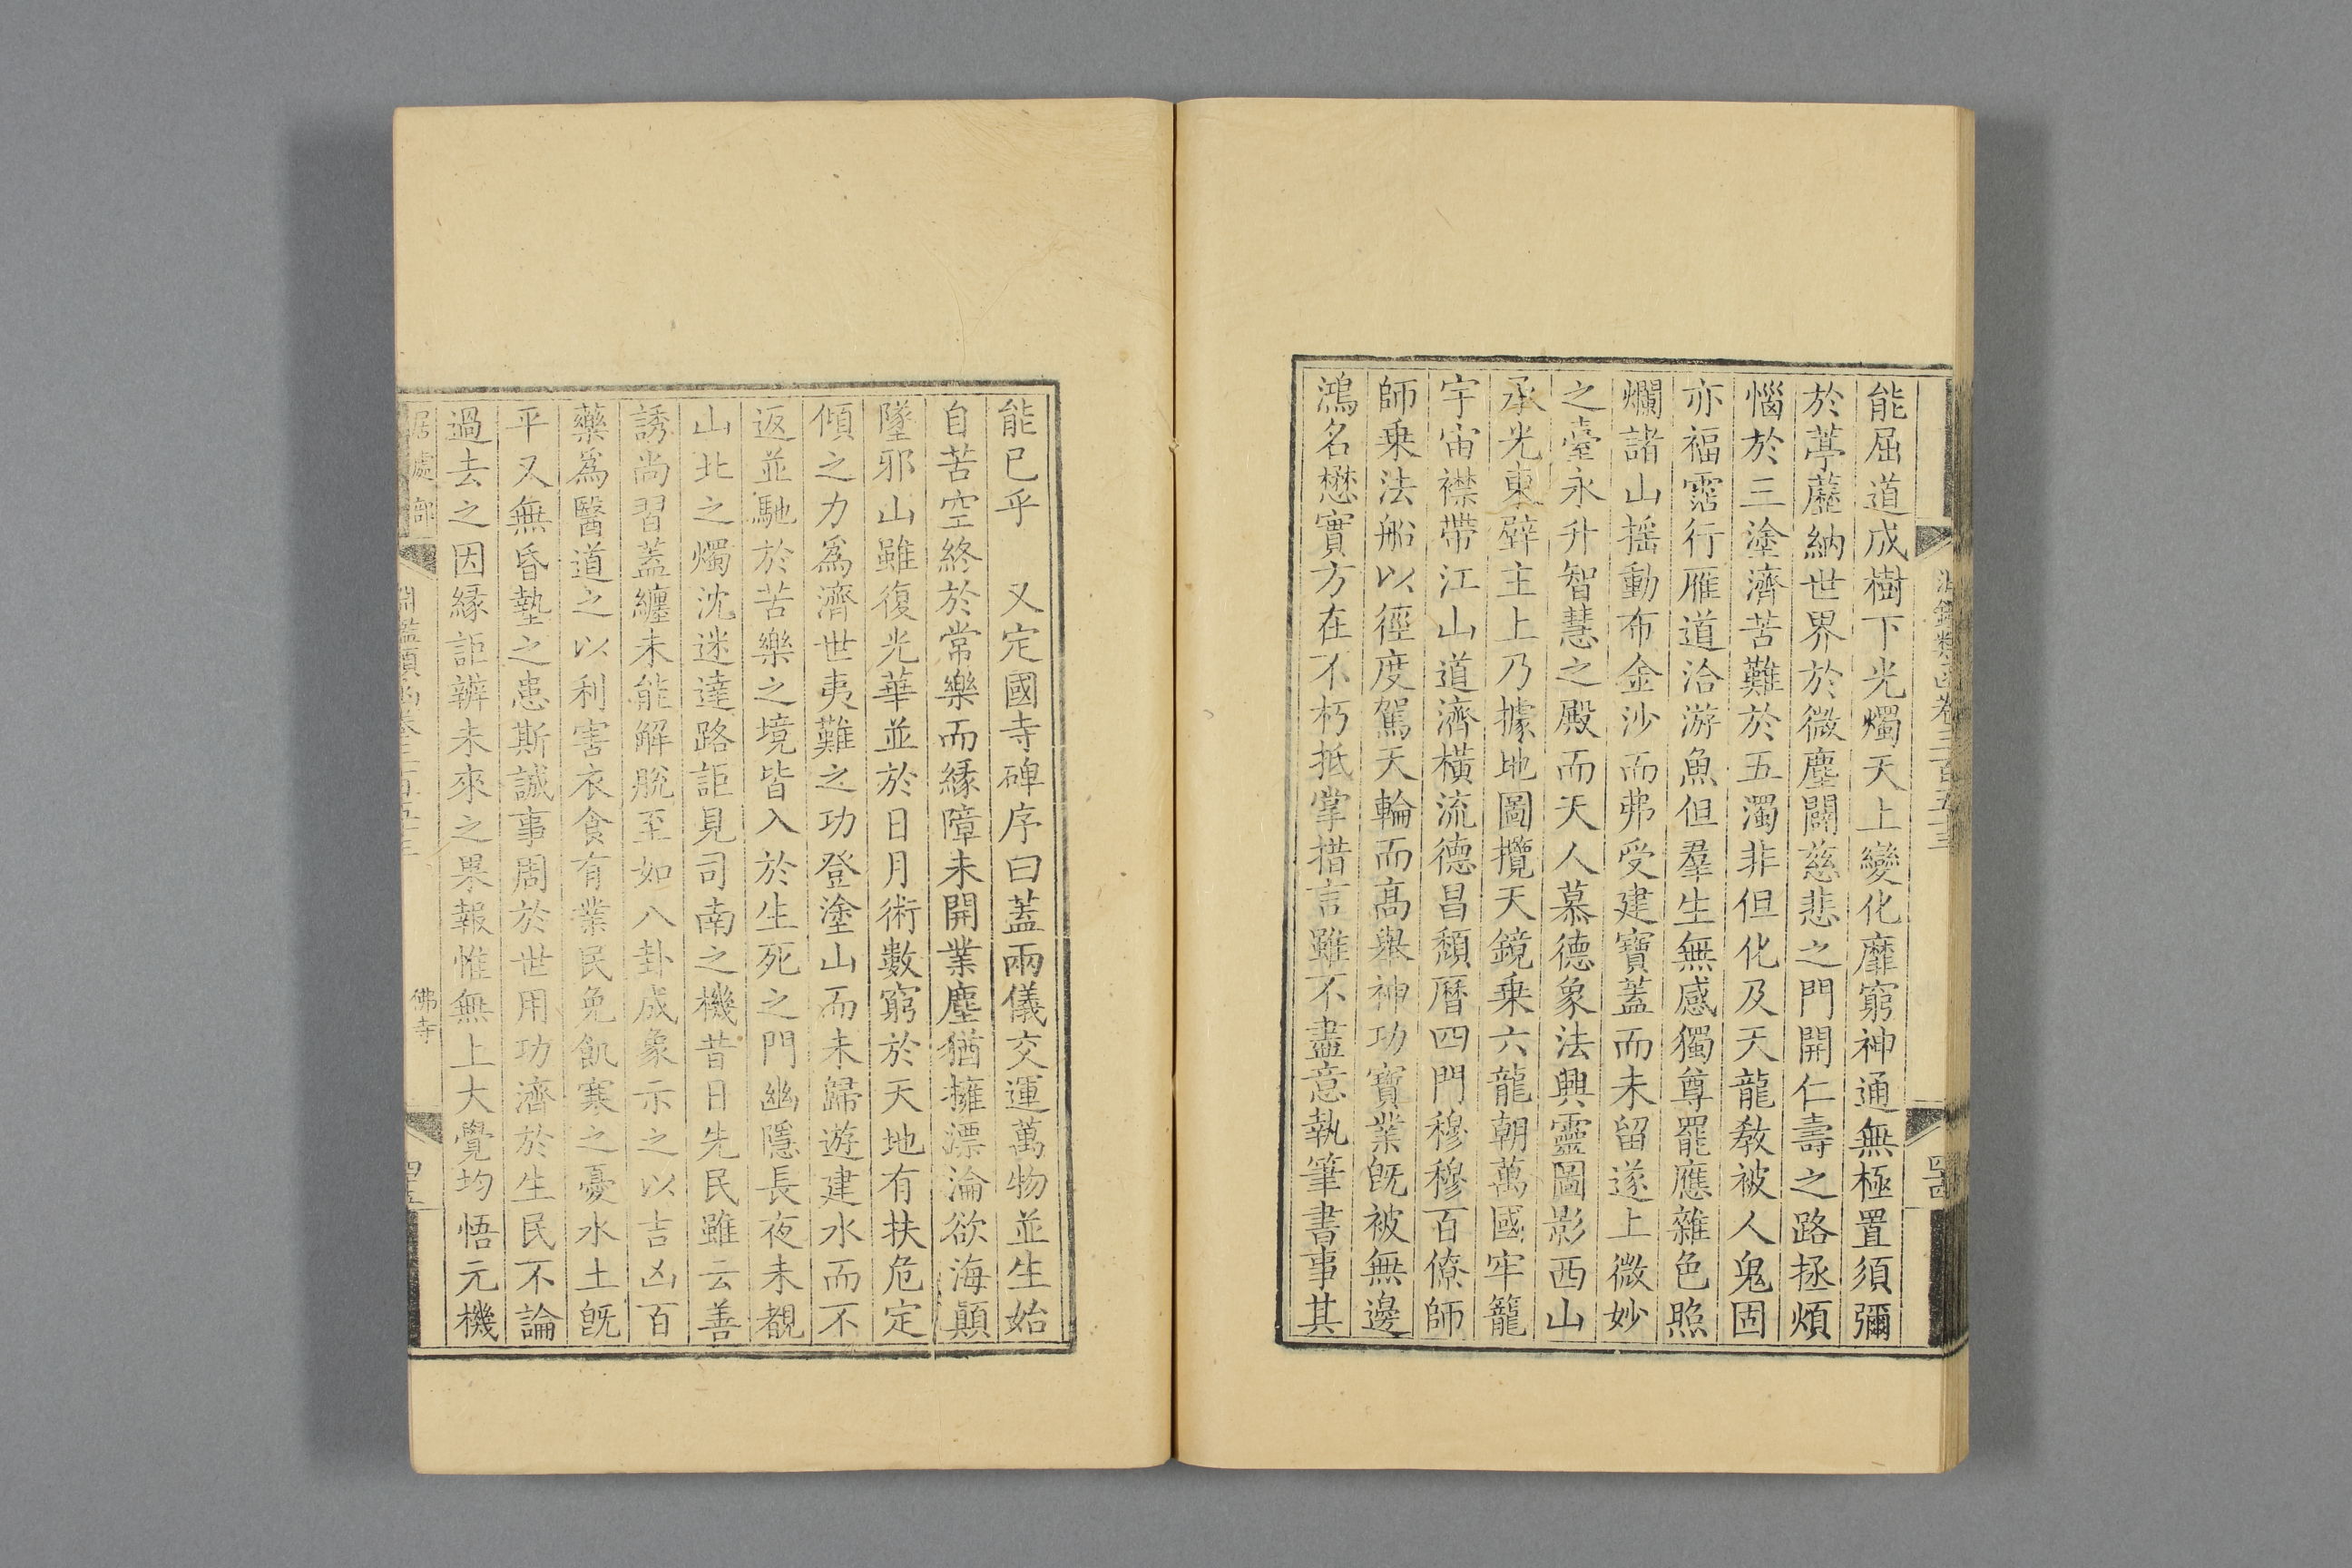 淵鑑類函卷三百五十三
能屈道成樹下光燭天上變化靡窮神通無極置須彌
於葶藶納世界於微塵闢慈悲之門開仁壽之路拯煩
惱於三塗濟苦難於五濁非但化及天龍教被人鬼固
亦福霑行雁道洽游魚但羣生無感獨尊罷應雜色照
爛諸山搖動布金沙而弗受建寶蓋而未留遂上微妙
之臺永升智慧之殿而天人慕德象法興靈圖影西山
承光東壁主上乃據地圖攬天鏡乗六龍朝萬國牢籠
宇宙襟帶江山道濟橫流德昌頹曆四門穆穆百僚師
師乗法船以徑度駕天輪而高舉神功寶業旣被無邊
鴻名懋實方在不朽抵掌措言雖不盡意執筆書事其
能已乎　又定國寺碑序曰蓋兩儀交運萬物並生始
自苦空終於常樂而緣障未開業塵猶擁漂淪欲海顛
墜邪山雖復光華並於日月術數窮於天地有扶危定
傾之力爲濟世夷難之功登塗山而未歸遊建水而不
返並馳於苦樂之境皆入於生死之門幽隱長夜未覩
山北之燭沈迷達路詎見司南之機昔日先民雖云善
誘尚習蓋纏未能解脫至如八卦成象示之以吉凶百
藥爲醫道之以利害衣食有業民免飢寒之憂水土旣
平又無昏墊之患斯誠事周於世用功濟於生民不論
過去之因緣詎辨未來之果報惟無上大覺均悟元機
居處部　淵鑑類函卷三百五十三　佛寺